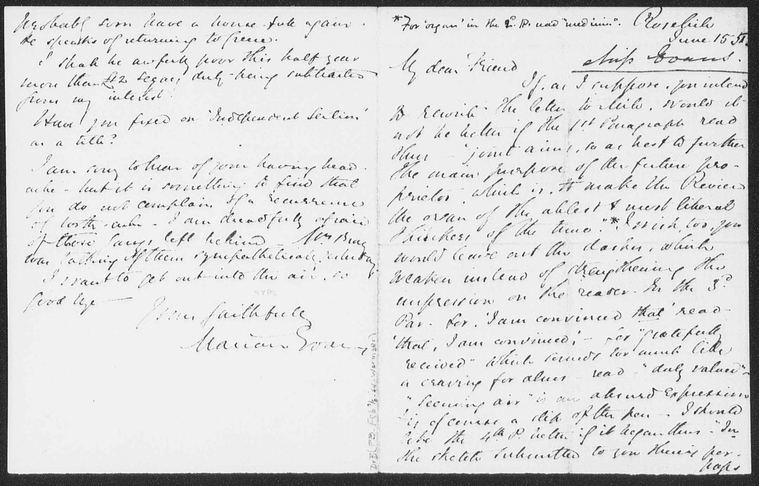 *For 'organ' in the 2d. P. read "medium".
Rosehill
June 15 51
Miss Evans.
My dear Friend
If, as I suppose, you intend
to rewrite the letter to Mile, would it
not be better if the 1st Paragraph read
thus – "joint aims, so as best to further
the main purpose of the future pro-
prietor, which is, to make the Review
the organ of the ablest & most liberal
thinkers of the time."* I wish, too, you
would leave out the dashes, which
weaken instead of strengthening the
impression on the reader. In the 3d.
Par. for, 'I am convinced that' read –
'that, I am convinced, – for "gratefully
received" which sounds too much like
a craving for alms read "duly valued" –
"Seeming air" is an absurd expression
& is of course a slip of the pen – I should
like the 4th P. better if it began thus – "In
the sketch submitted to you there is per-
haps
probably soon have a house-full again.
He speaks of returning to Greece.
I shall be awfully poor this half year
more than £12 legacy duty being subtracted
from my interest!
Have you fixed on 'Independent Section'
as a title?
I am sorry to hear of your having head-
ache – but it is something to find that
you do not complain of a recurrence
of tooth-ache – I am dreadfully afraid
of those fangs left behind – Mrs Bray
was talking of them sympathetically yesterday.
I want to get out into the air, so
Good bye –
Yours faithfully
Marian Evans